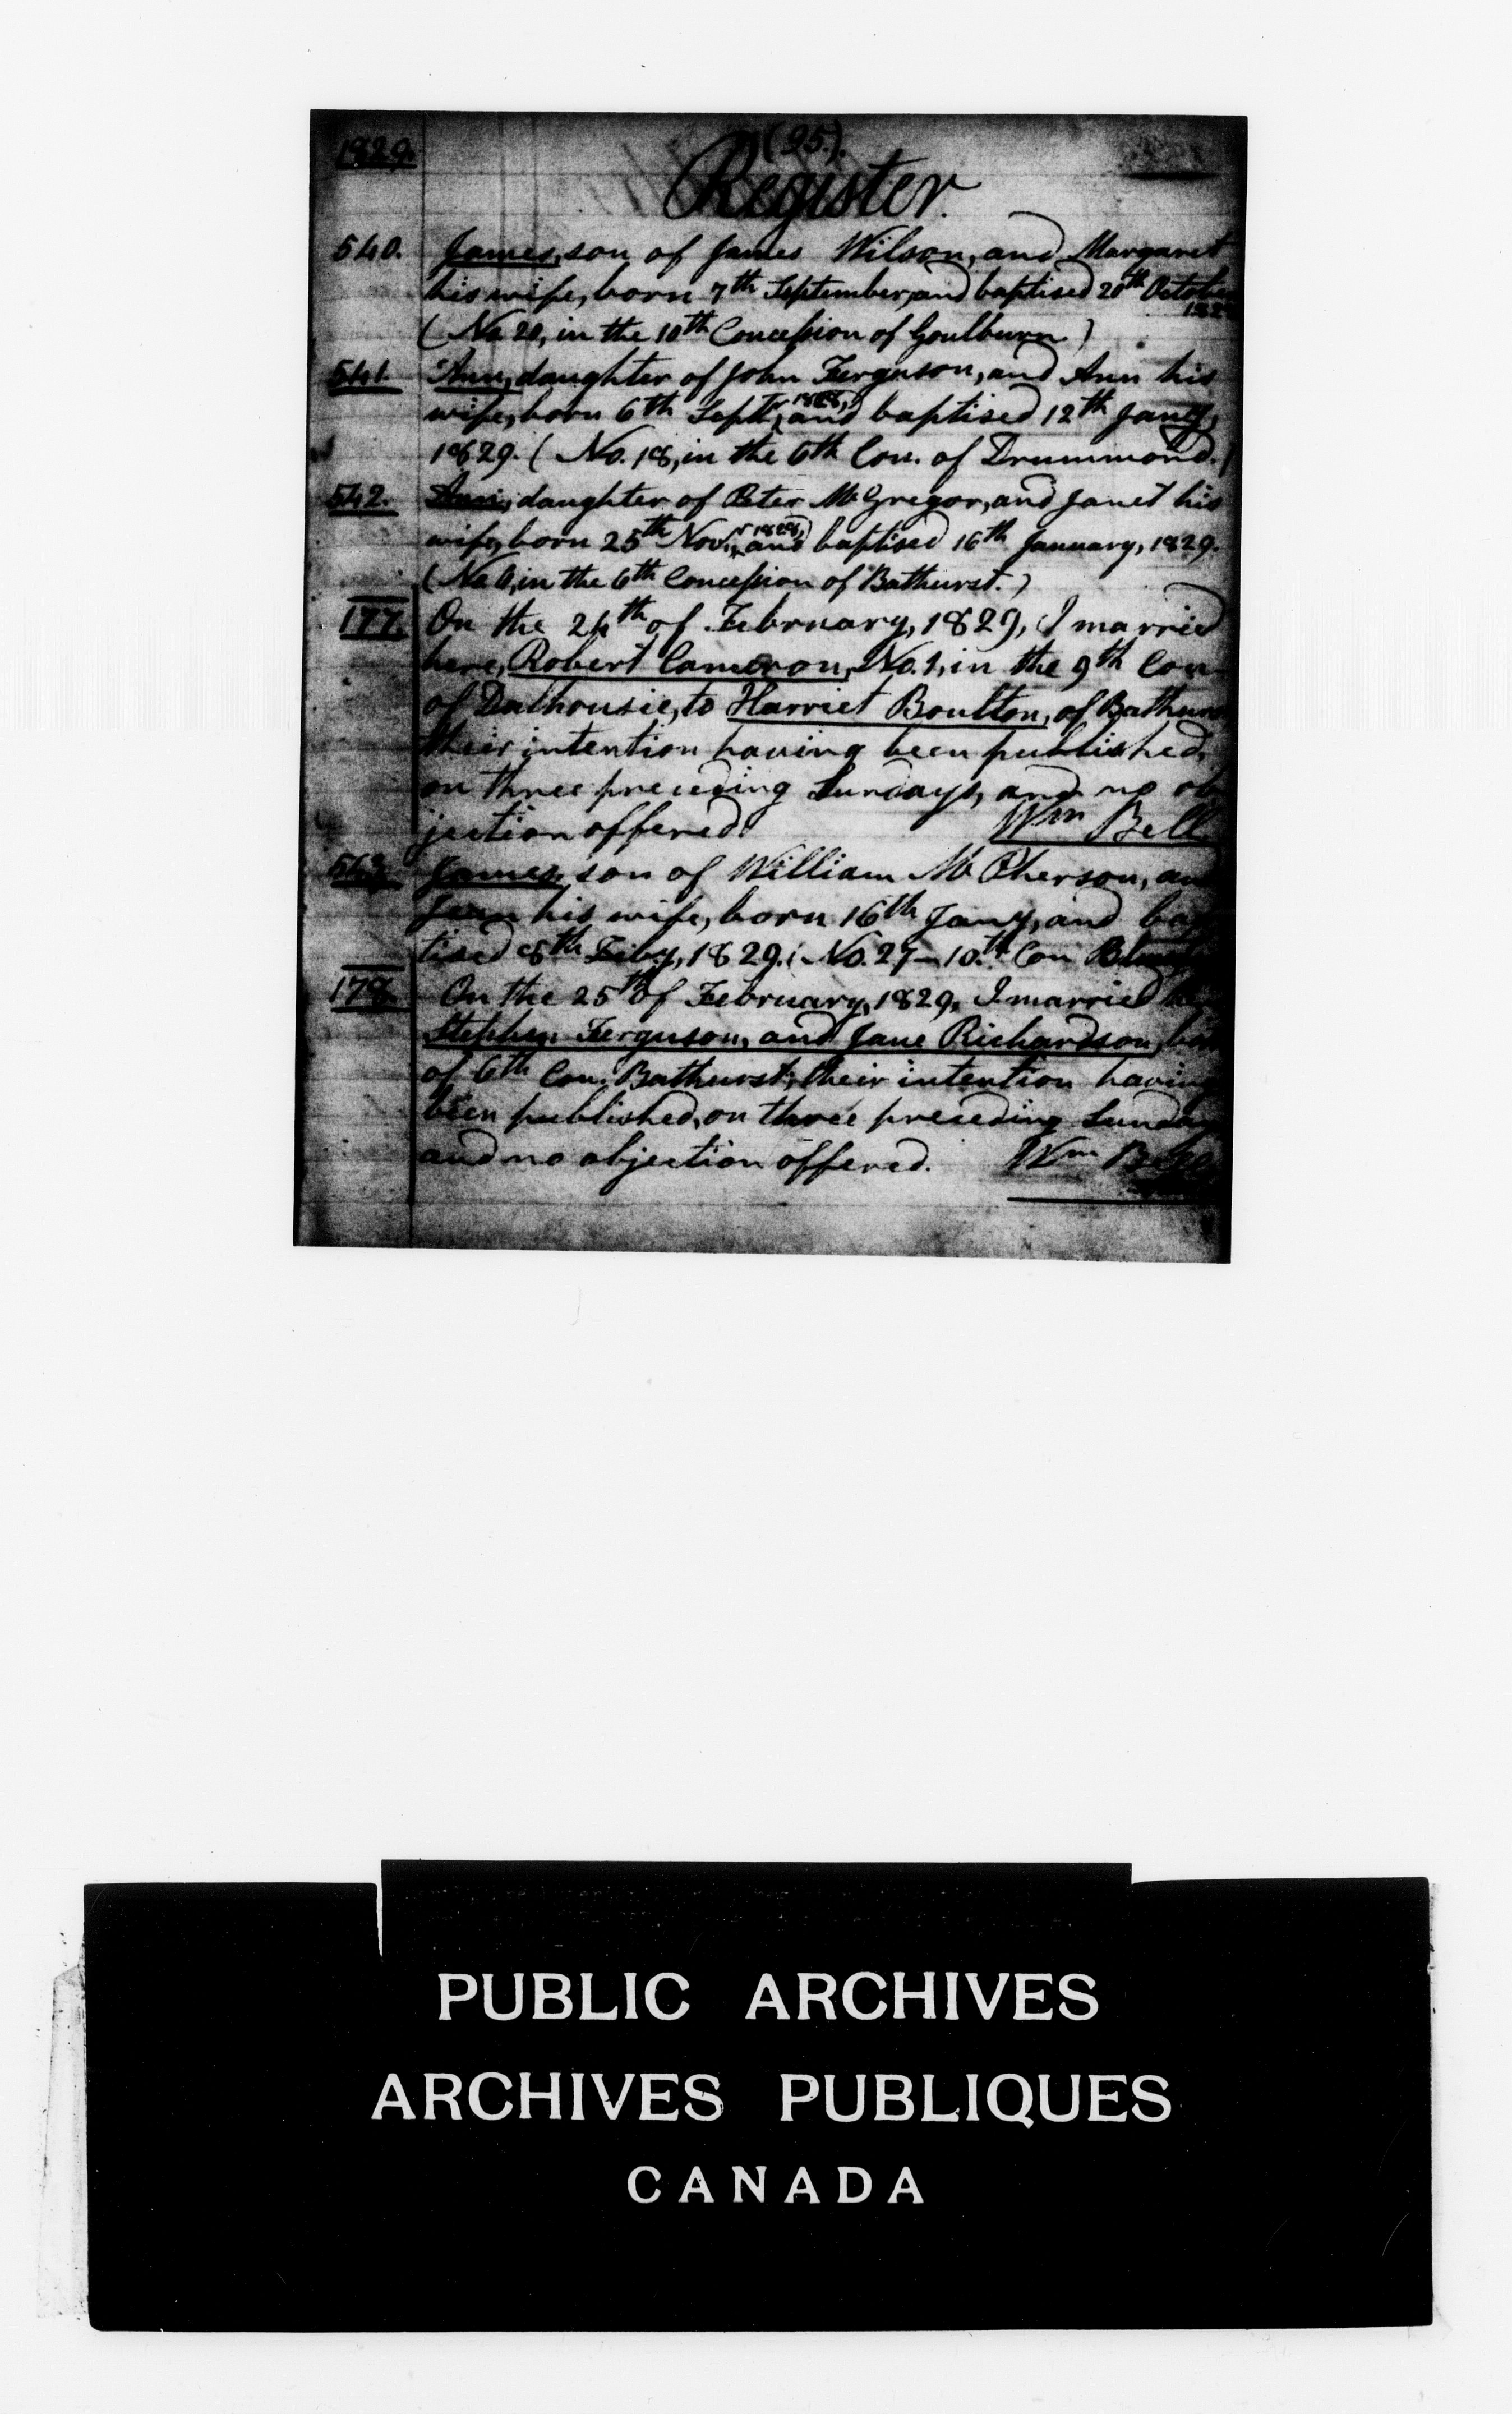 1829.
(95.)
Register.
540. James, son of James Wilson, and Margaret
his wife, born 7th September, and baptised 20th October
182
(No 20, in the 10th Concession of Goulburn)
541. Ann, daughter of John Ferguson, and Ann his
wife, born 6th Septr, 1828, and baptised 12th Jany,
1829. (No. 18, in the 6th Con. of Drummond.)
542. Ann, daughter of Peter McGregor, and Janet his
wife, born 25th Novr, 1828, and baptised 16th January, 1829.
(No 6, in the 6th Concession of Bathurst.)
177. On the 24th of February, 1829, I married
here, Robert Cameron, No. 1, in the 9th Con
of Dalhousie, to Harriet Boulton, of Bathurst
their intention having been published,
on three preceding Sundays, and no ob
jection offered. Wm Bell
543. James, son of William McPherson, and
Jean his wife, born 16th Jany, and bap
tised 8th Feby, 1829. (No. 27 – 10.th Con
178. On the 25th of February, 1829, I married
Stephen Ferguson, and Jane Richardson, both
of 6th Con. Bathurst, their intention having
been published, on three preceding Sundays
and no objection offered. Wm Bell
PUBLIC ARCHIVES
ARCHIVES PUBLIQUES
CANADA